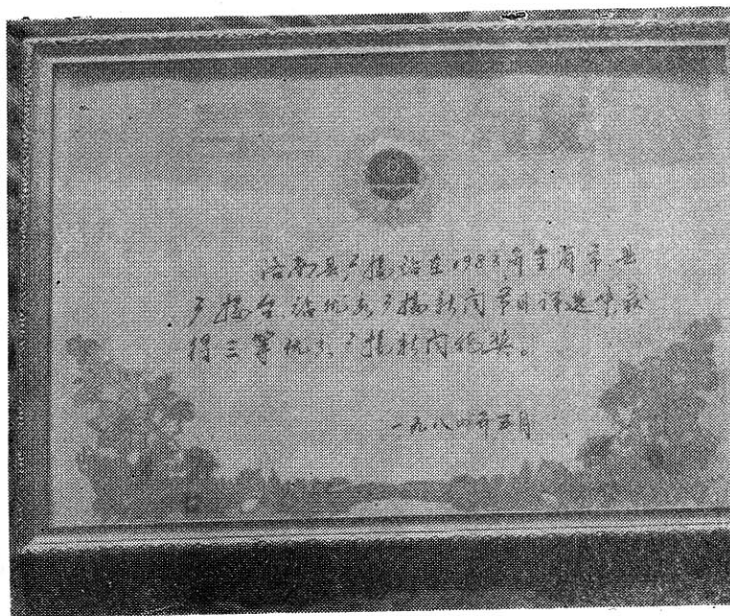 洛南县广播站在1983年全省市、县
广播台、站优秀广播新闻节目评选中获
得三等优秀广播新闻稿奖。
一九八四年五月